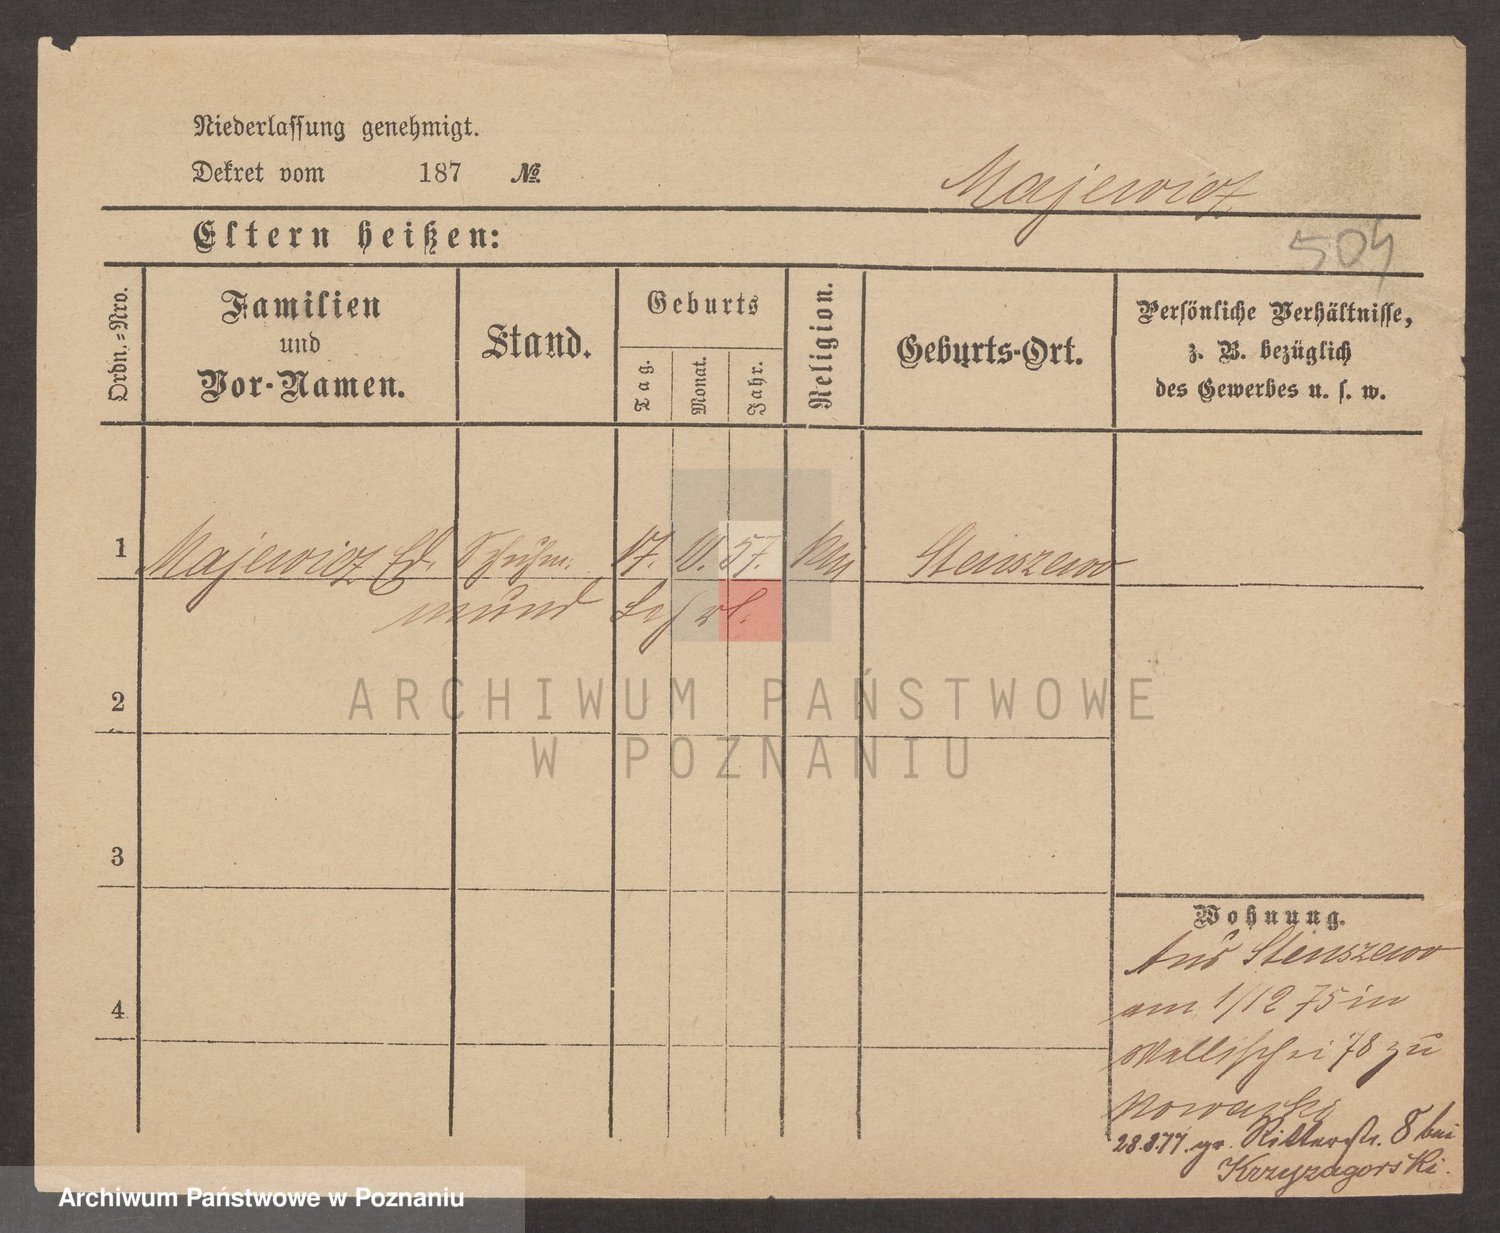 Niederlassung genehmigt.
Dekret vom 187 №
Majewicz
Eltern heißen:
504
Ordn.=Nro.
Familien
und
Vor-Namen.
Stand.
Geburts
Tag.
Monat.
Jahr.
Religion.
Geburts-Ort.
Persönliche Verhältnisse,
z. B. bezüglich
des Gewerbes u. s. w.
1 Majewicz Ed. Schuhm. 17. 11. 57. Stenszewo
mund Lehrl.
2
ARCHIWUM PAŃSTWOWE
W POZNANIU
3
Wohnung.
Aus Stenszewo
am 1/12 75 in
4
Wallischei 78 zu
Nowacki
28.8.77. gr. Ritterstr. 8 bei
Krzyzagorski.
Archiwum Państwowe w Poznaniu